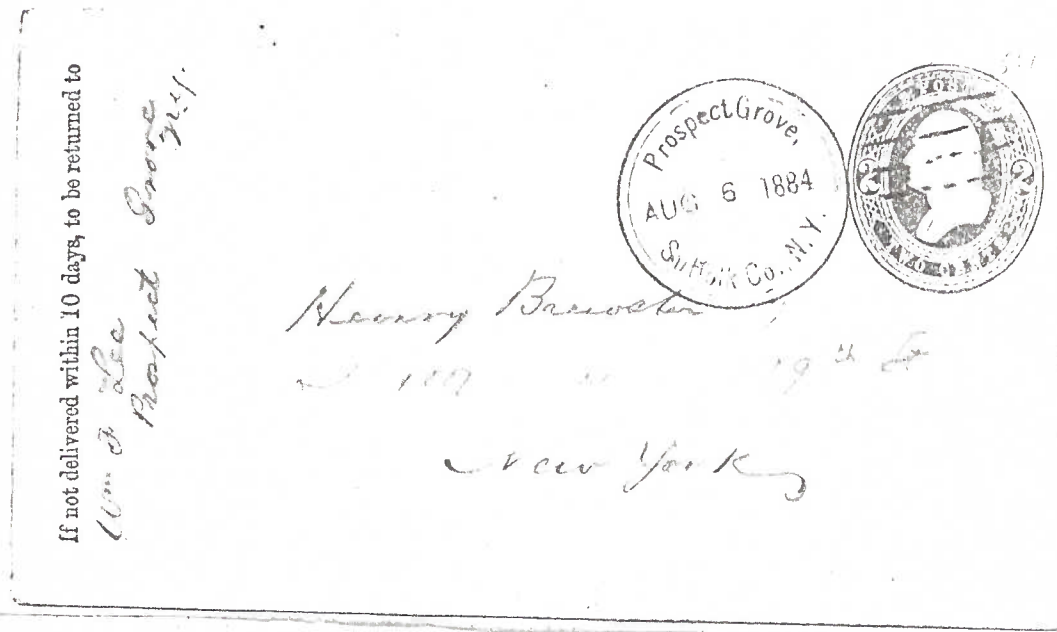 If not delivered within 10 days, to be returned to
Wm F Lee
Prospect Grove
N.Y.
Prospect Grove,
AUG 6 1884
Suffolk Co., N.Y.
2 2
TWO CENTS
Henry Brewster
19th St
New York